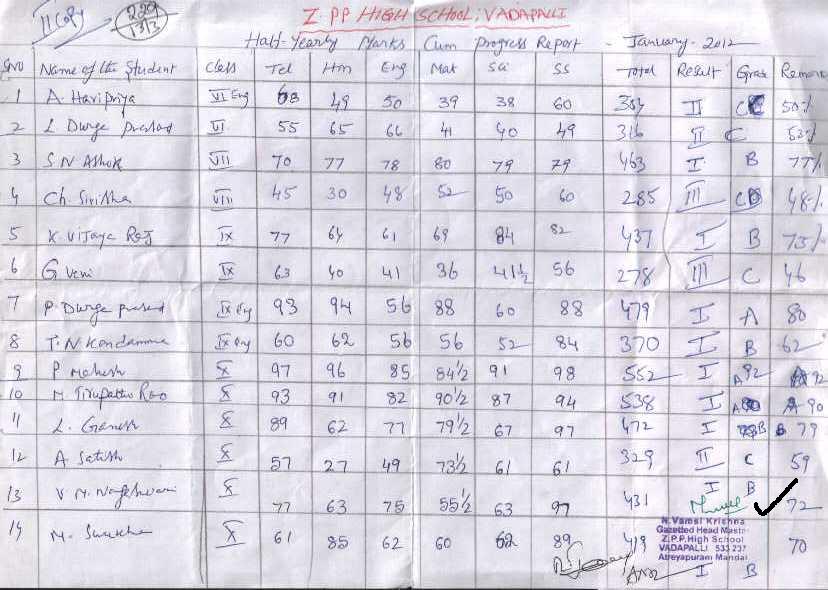 II Copy
229
13/3
Z.PP HIGH SCHOOL; VADAPALLI
Half-Yearly Marks Cum Progress Report - January-2012
SNO Name of the Student Class Tel Hin Eng Mat Sci SS Total Result Grade Remark
1 A. Haripriya VI Eng 68 49 50 39 38 60 II C 50%
2 L. Durga prasad VI 55 65 66 41 40 49 316 II C 53%
3 S N Ashok VII 70 77 78 80 79 79 463 I B 77%
4 Ch. Sirisha VIII 45 30 48 52 50 60 285 III C 48%
5 K. Vijaya Raj IX 77 64 61 69 84 82 437 I B 73%
6 G Veni IX 63 40 41 36 41½ 56 278 III C 46
7 P. Durga prasad IX Eng 93 94 56 88 60 88 479 I A 80
8 T. N Kondamma IX Eng 60 62 56 56 52 84 370 I B 62
9 P Mahesh X 97 96 85 84½ 91 98 552 I A 92 A 92
10 M. Tirupathi Rao X 93 91 82 90½ 87 94 538 I A A-90
11 L. Ganesh X 89 62 77 79½ 67 97 472 I B B 79
12 A Satish X 57 27 49 73½ 61 61 329 II C 59
13 V. M. Nageshwari X 77 63 75 55½ 63 97 431 I B 72
14 M. X 61 85 62 60 62 89 419 I B 70
N. Vamsi Krishna
Gazetted Head Master
Z.P.P.High School
VADAPALLI 533 237
Atreyapuram Mandal